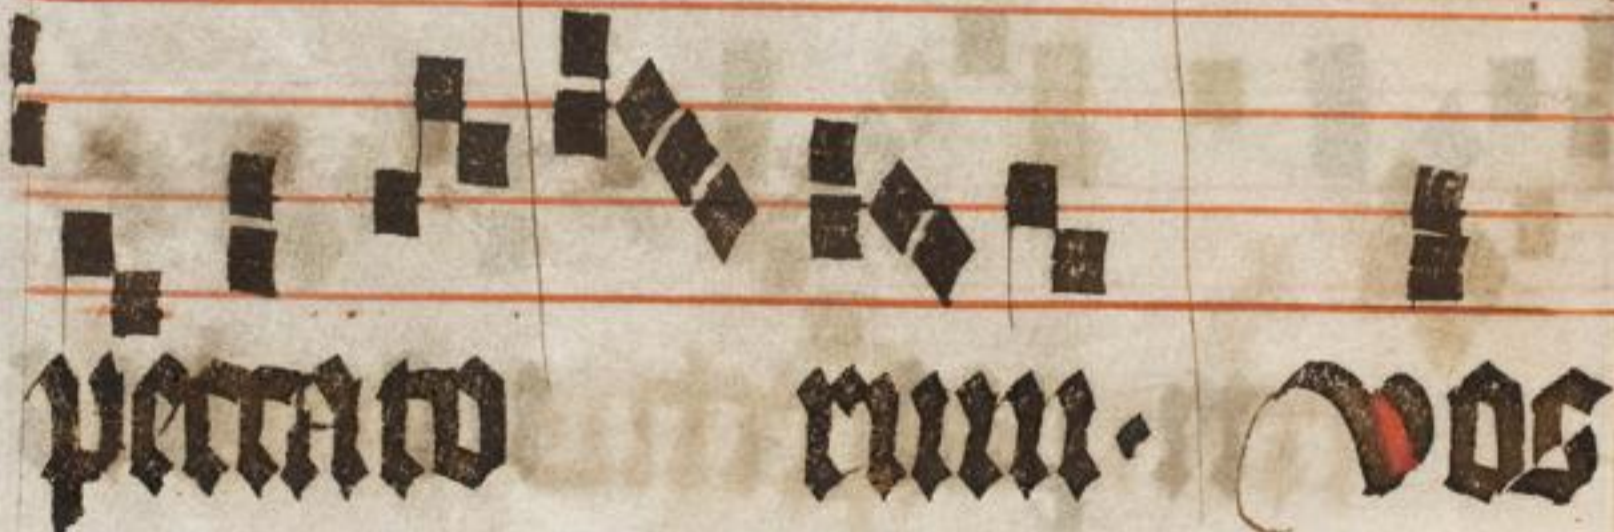 peccato rum. Vos